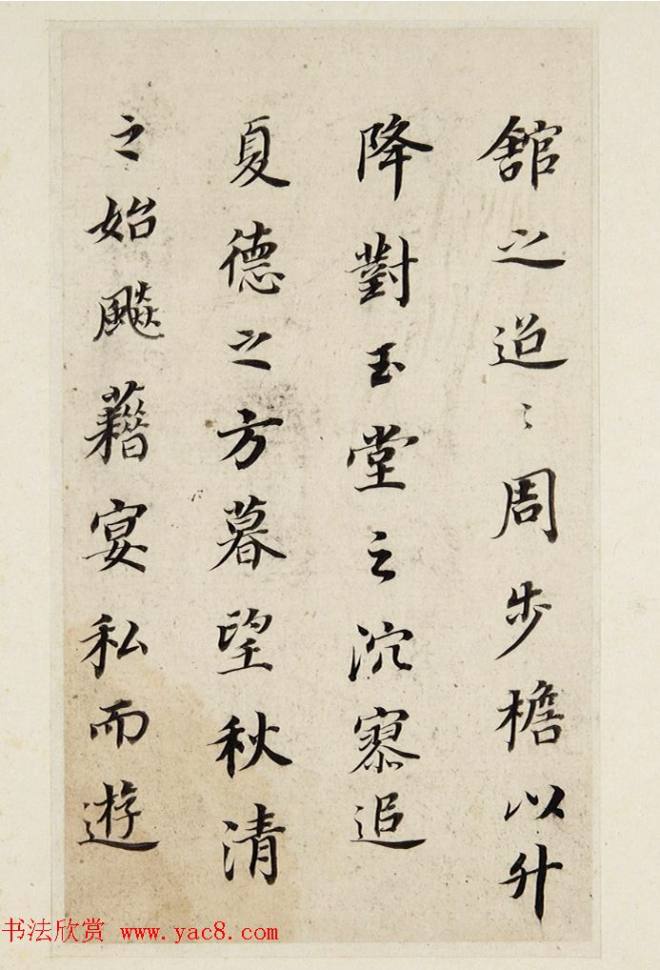 舘之迢〻周步檐以升
降對玉堂之泬寥追
夏德之方暮望秋清
之始飇藉宴私而遊
书法欣赏 www.yac8.com